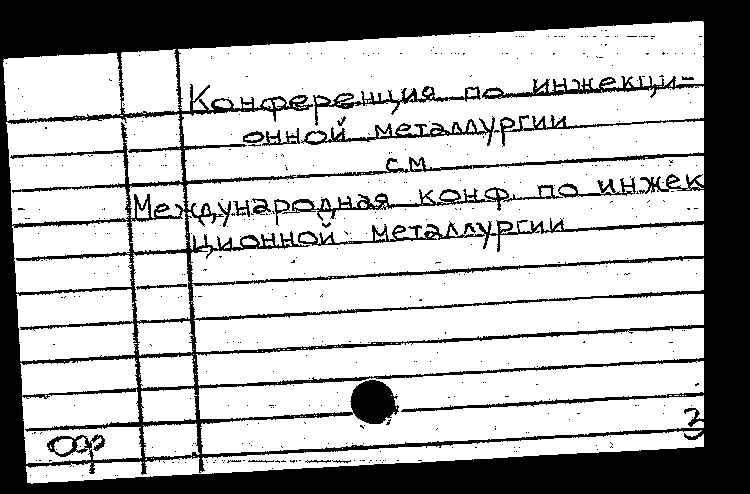 Конференция по инжекци-
онной металлургии
см
Международная конф. по инжек
ционной металлургии
орр
3